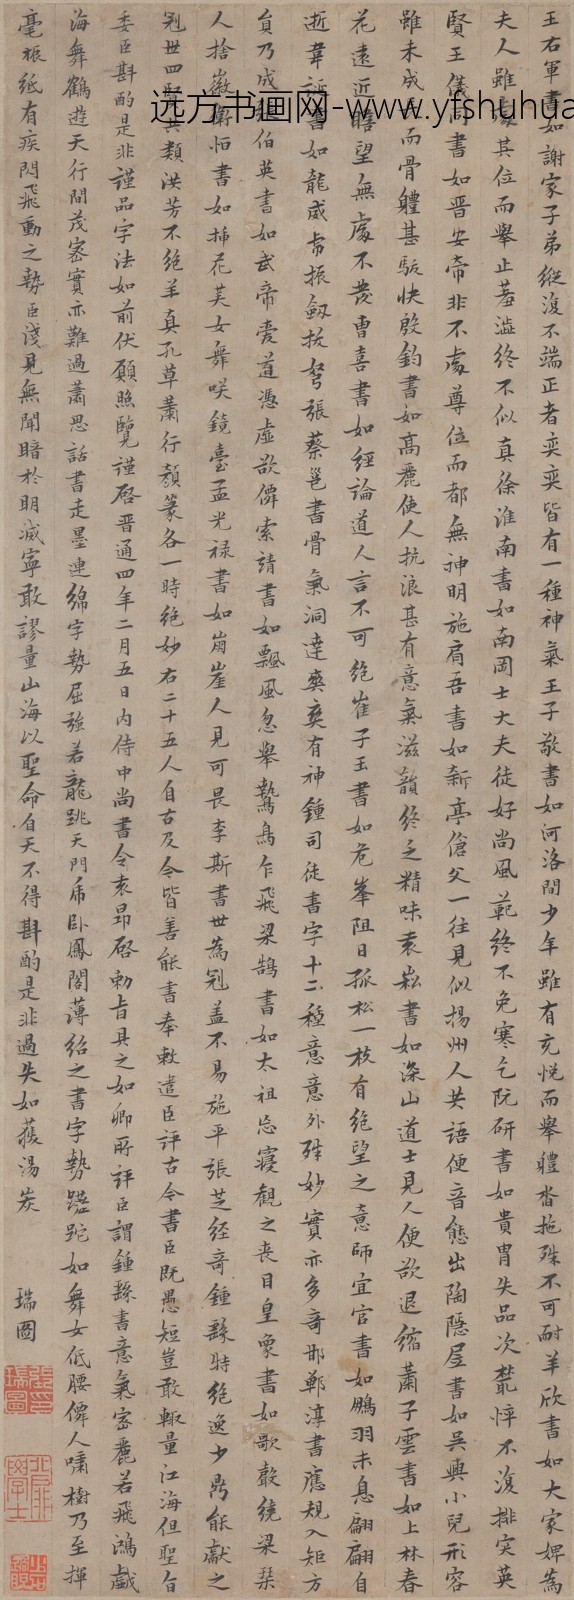 王右軍書如謝家子弟縱復不端正者奕奕皆有一種神氣王子敬書如河洛間少年雖有充悦而舉體沓拖殊不可耐羊欣書如大家婢為
夫人雖處其位而舉止羞澁終不似真徐淮南書如南岡士大夫徒好尚風範終不免寒乞阮研書如貴胄失品次藂悴不復排突英
賢王儀同書如晋安帝非不處尊位而都無神明施肩吾書如新亭傖父一往見似揚州人共語便音態出陶隱居書如吳興小兒形容
雖未成長而骨體甚駁快殷鈞書如高麗使人抗浪甚有意氣滋韻終乏精味袁崧書如深山道士見人便欲退縮蕭子雲書如上林春
花遠近瞻望無處不發曹喜書如經論道人言不可絶崔子玉書如危峯阻日孤松一枝有絶望之意師宜官書如鵬羽未息翩翩自
逝韋誕書如龍威虎振劔拔弩張蔡邕書骨氣洞達爽爽有神鍾司徒書字十二種意意外殊妙實亦多奇邯鄲淳書應規入矩方
員乃成張伯英書如武帝愛道憑虛欲僊索靖書如飄風忽舉鷙鳥乍飛梁鵠書如太祖忘寢觀之喪目皇象書如歌聲繞梁琹
人捨徽衛恒書如插花美女舞咲鏡臺孟光禄書如崩崖人見可畏李斯書世為冠盖不易施平張芝經奇鍾繇特絶逸少鼎能獻之
冠世四賢共類洪芳不絶羊真孔草蕭行顏篆各一時絶妙右二十五人自古及今皆善能書奉敕遣臣評古今書臣既愚短豈敢輙量江海但聖旨
委臣斟酌是非謹品字法如前伏願照覽謹啓晋通四年二月五日内侍中尚書令袁昂啓勅旨具之如卿所評臣謂鍾繇書意氣密麗若飛鴻戲
海舞鶴遊天行間茂密實亦難過蕭思話書走墨連綿字勢屈強若龍跳天門虎卧鳳閣薄紹之書字勢蹉跎如舞女低腰僊人嘯樹乃至揮
毫振紙有疾閃飛動之勢臣淺見無聞暗於明滅寧敢謬量山海以聖命自天不得斟酌是非過失如蒦湯炭
瑞圖
远方书画网-www.yfshuhua